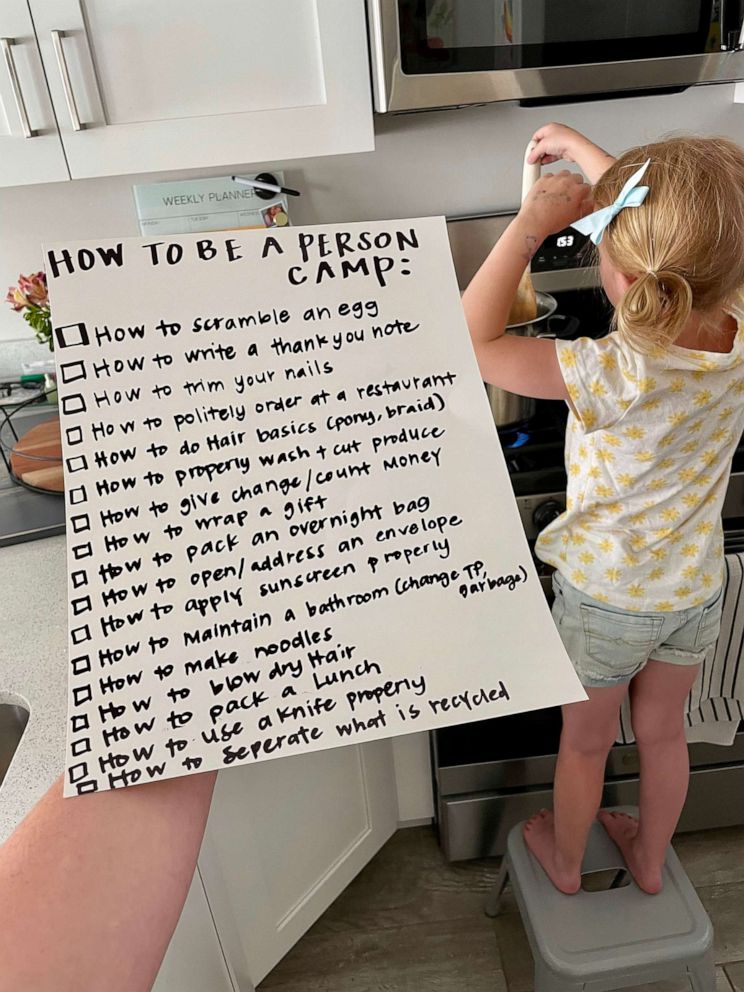 WEEKLY PLANNER
153
HOW TO BE A PERSON
CAMP:
How to scramble an egg
How to write a thank you note
How to trim your nails
How to politely order at a restaurant
How to do Hair basics (pony, braid)
How to properly wash + cut produce
How to give change/count Money
How to wrap a gift
How to pack an overnight bag
How to open/address an envelope
How to apply sunscreen properly
How to Maintain a bathroom (change TP,
garbage)
How to make noodles
How to blow dry Hair
How to pack a Lunch
How to use a knife properly
How to seperate what is recycled